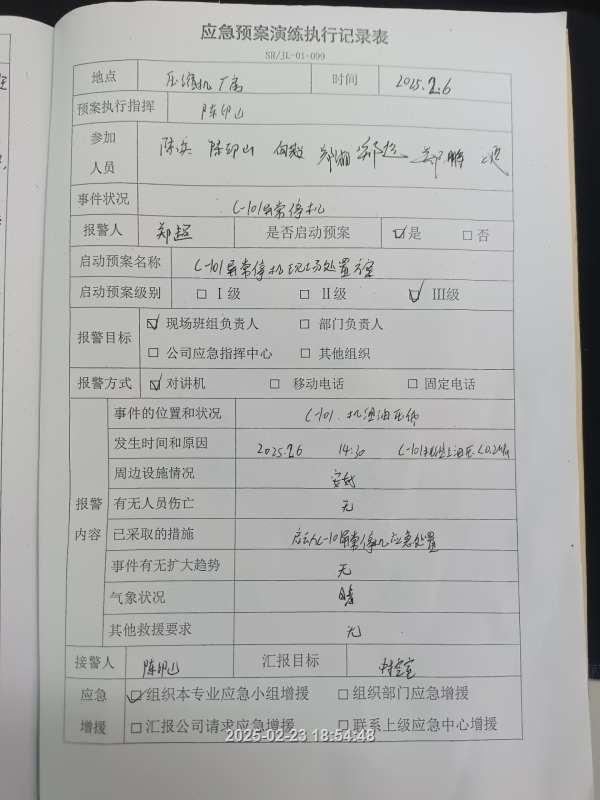 应急预案演练执行记录表
SR/JL-01-099
地点 压缩机厂房 时间 2025.2.6
预案执行指挥 陈卯山
参加 陈兵 陈卯山 郑湘 郑超 郑鹏
人员
事件状况 C-101异常停机
报警人 郑超 是否启动预案 ☑是 □否
启动预案名称 C-101异常停机现场处置方案
启动预案级别 □Ⅰ级 □Ⅱ级 ☑Ⅲ级
☑现场班组负责人 □部门负责人
报警目标
□公司应急指挥中心 □其他组织
报警方式 ☑对讲机 □移动电话 □固定电话
事件的位置和状况 C-101.机组油压低
发生时间和原因 2025.2.6 14:30 C-101 油压<0.2MPa
周边设施情况 完好
报警 有无人员伤亡 无
内容 已采取的措施 启动C-101异常停机应急处置
事件有无扩大趋势 无
气象状况 晴
其他救援要求 无
接警人 陈卯山 汇报目标 中控室
应急 ☑组织本专业应急小组增援 □组织部门应急增援
增援 □汇报公司请求应急增援 □联系上级应急中心增援
2025-02-23 18:54:48